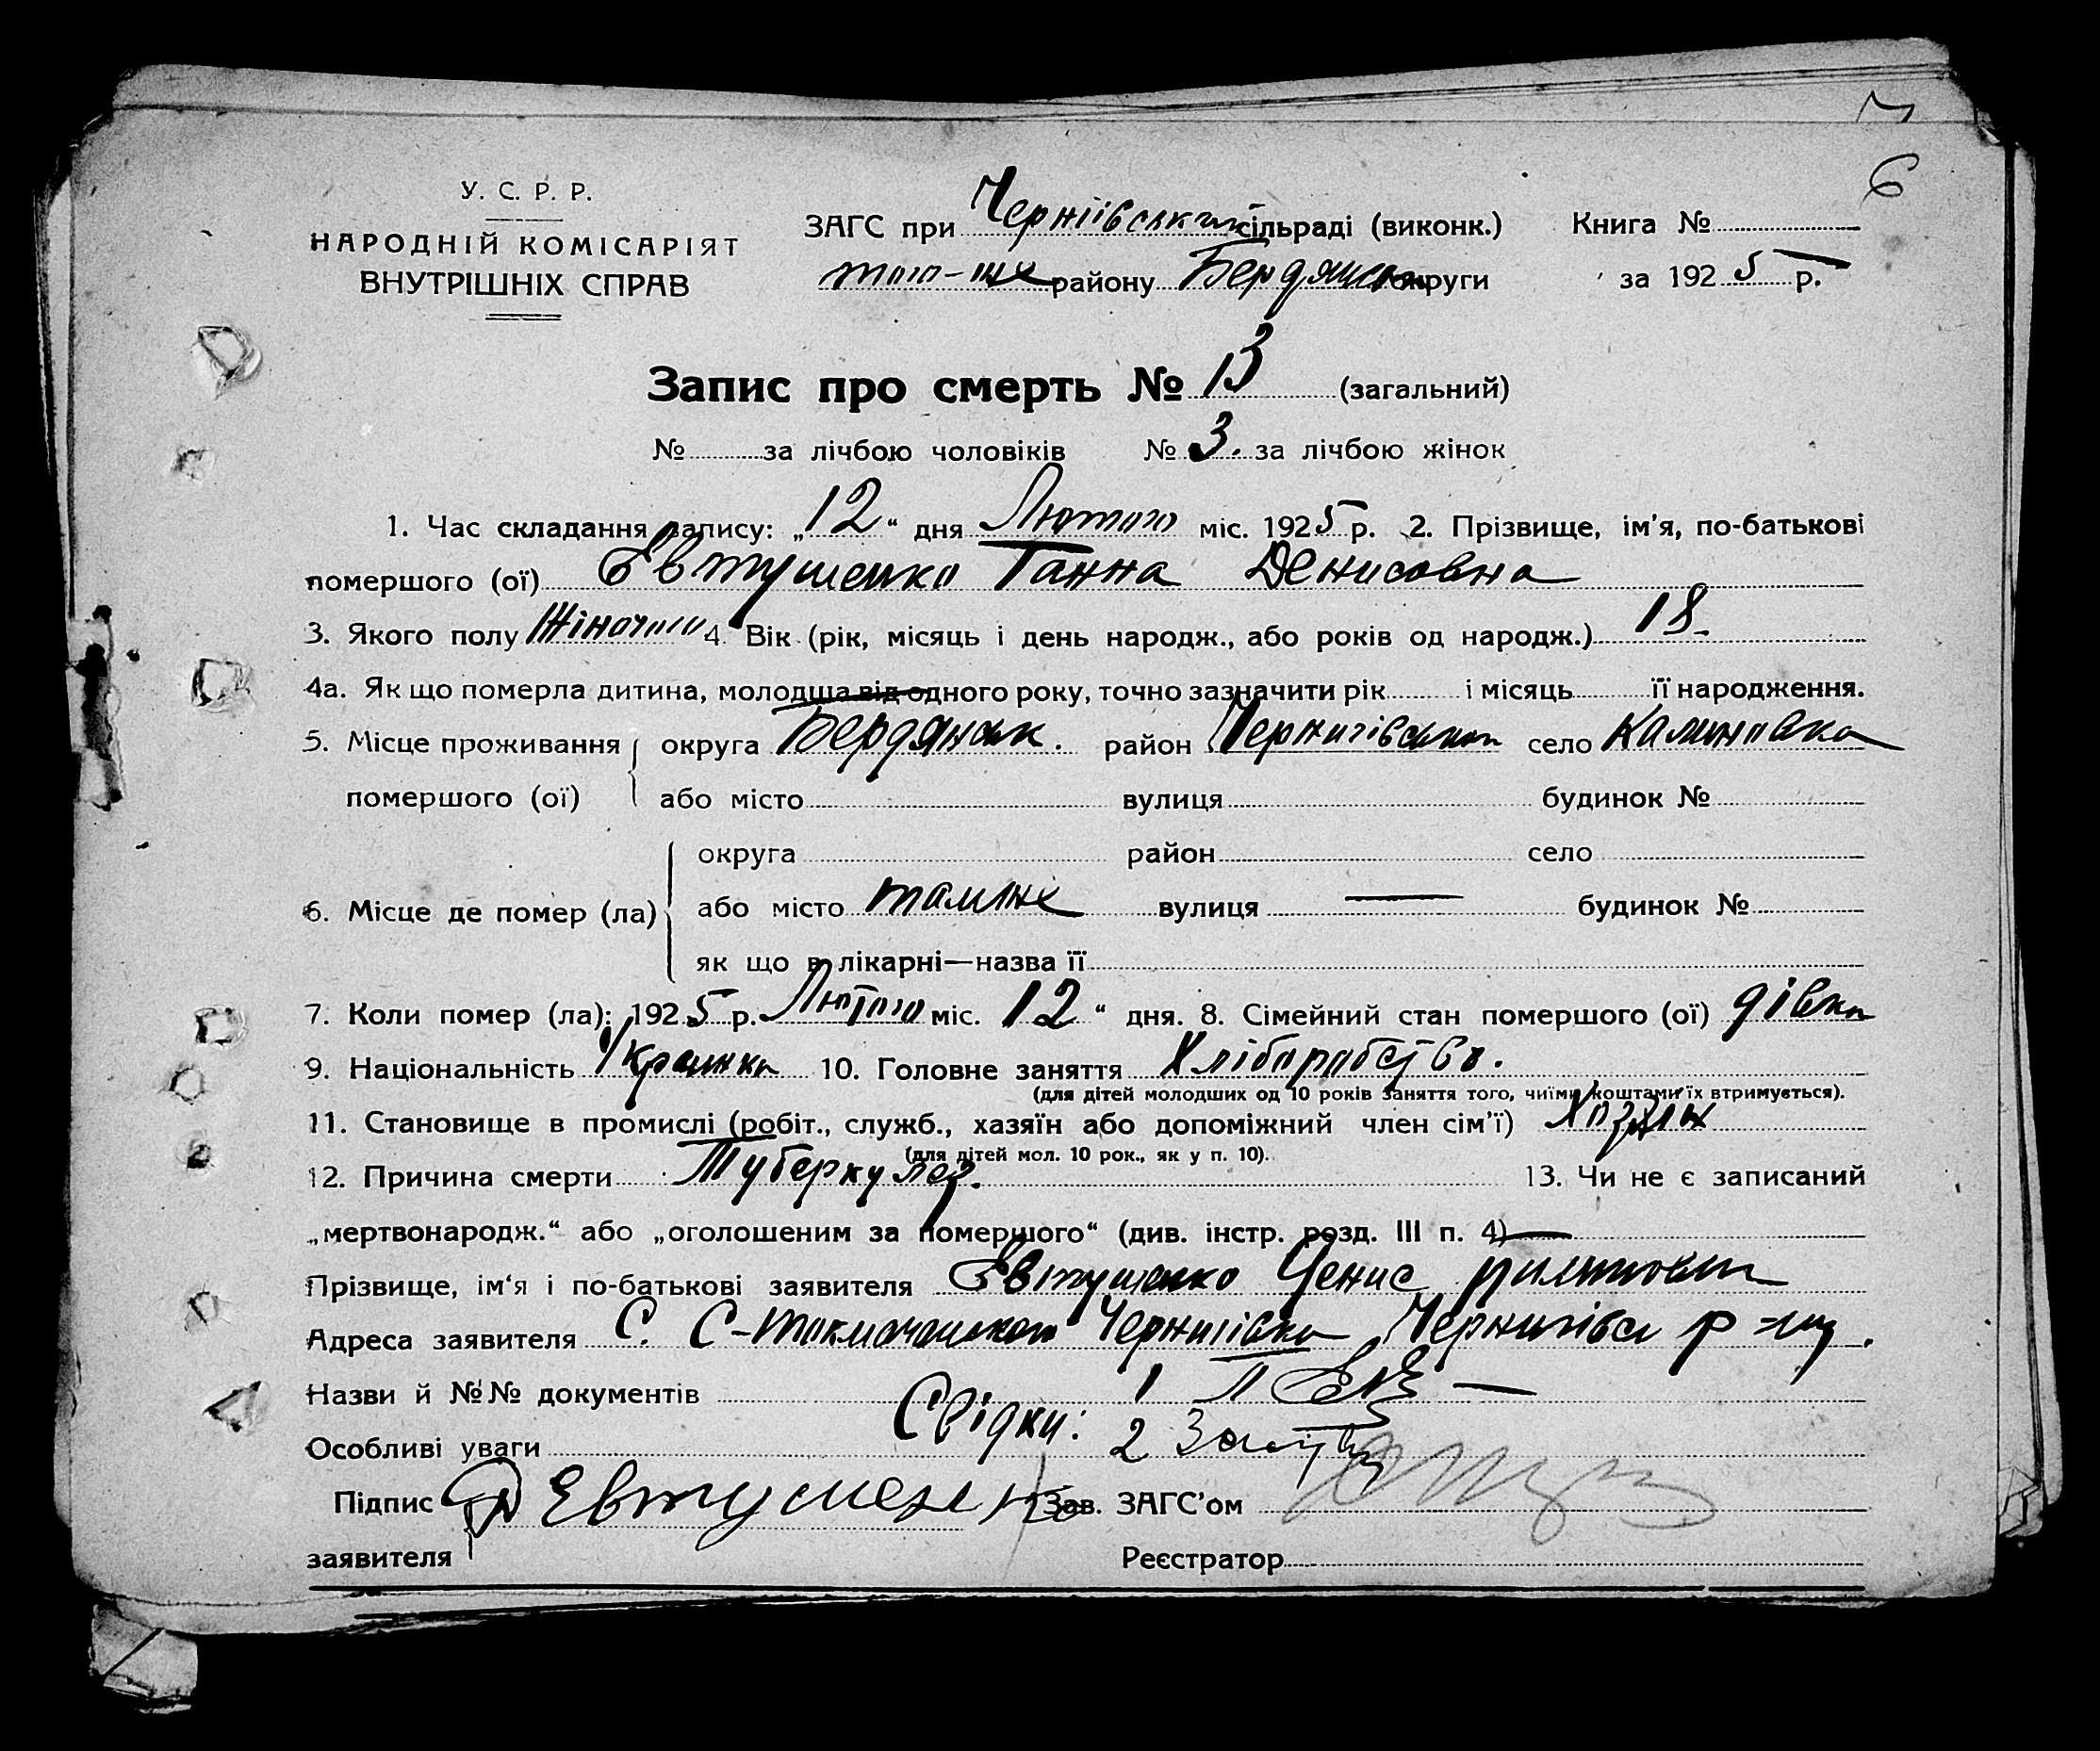 7
6
У. С. Р. Р.
НАРОДНІЙ КОМІСАРІЯТ
ВНУТРІШНІХ СПРАВ
ЗАГС при Черніївській сільраді (виконк.) Книга №
того-ще району Бердянськ округи за 1925 р.
Запис про смерть № 13 (загальний)
№ за лічбою чоловіків № 3. за лічбою жінок
1. Час складання запису: „12“ дня Лютого міс. 1925 р. 2. Прізвище, ім'я, по-батькові
помершого (ої) Евтушенко Ганна Денисовна
3. Якого полу Жіночого 4. Вік (рік, місяць і день народж., або років од народж.) 18
4а. Як що померла дитина, молодша від одного року, точно зазначити рік і місяць її народження.
5. Місце проживання округа Бердянськ. район Чернигівський село Калиновка
помершого (ої) або місто вулиця будинок №
округа район село
6. Місце де помер (ла) або місто тамже вулиця — будинок №
як що в лікарні—назва її
7. Коли помер (ла): 1925 р. Лютого міс. 12“ дня. 8. Сімейний стан помершого (ої) дівка
9. Національність Украінка 10. Головне заняття Хліборобство.
(для дітей молодших од 10 років заняття того, чиїми коштами їх втримується).
11. Становище в промислі (робіт., служб., хазяїн або допоміжний член сім'ї) Хозяін
(для дітей мол. 10 рок., як у п. 10).
12. Причина смерти Туберкулез. 13. Чи не є записаний
„мертвонародж.“ або „оголошеним за помершого“ (див. інстр. розд. III п. 4) —
Прізвище, ім'я і по-батькові заявителя Евтушенко Денис
Адреса заявителя С. Чернигівка Чернигівськ р-ну.
Назви й №№ документів 1
Свідки:
Особливі уваги 2
Підпис Д Евтушенко Зав. ЗАГС'ом
заявителя Реєстратор